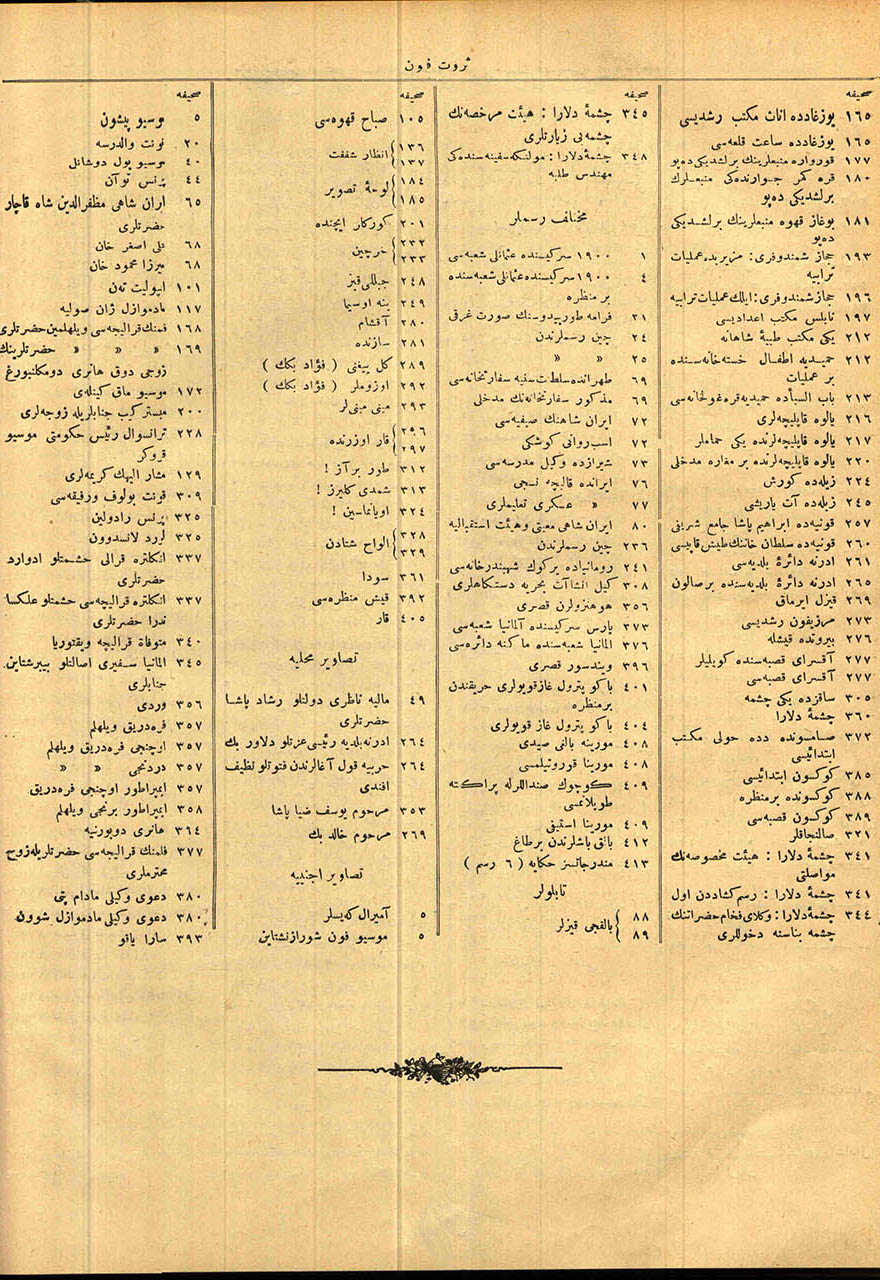 ثروت فنون
صحیفه
١٦٥ یوزغادده اناث مكتب رشدیسی
١٦٥ یوزغادده ساعت قلعه‌سی
١٧٧ قورواره منبعلرینك برلشدیكی ده‌پو
١٨٠ قره كمر جوارنده‌كی منبعلرك
برلشدیكی ده‌پو
١٨١ بوغاز قهوه منبعلرینك برلشدیكی
ده‌پو
١٩٣ حجاز شمندوفری: مزیربده عملیات
ترابیه
١٩٦ حجاز شمندوفری: ایلك عملیات ترابیه
١٩٧ نابلس مكتب اعدادیسی
٢١٢ یكی مكتب طبیهٔ شاهانه
٢١٢ حمیدیه اطفال خسته‌خانه‌سنده
بر عملیات
٢١٣ باب السباده حمیدیه قره‌غولخانه‌سی
٢١٦ یالوه قاپلیجه‌لری
٢١٧ یالوه قاپلیجه‌لرنده یكی حماملر
٢٢٠ یالوه قاپلیجه‌لرنده بر مغاره مدخلی
٢٢٤ زیله‌ده كورش
٢٤٥ زیله‌ده آت یاریشی
٢٥٧ قونیه‌ده ابراهیم پاشا جامع شریفی
٢٦٠ قونیه‌ده سلطان خاننك طیش قاپیسی
٢٦١ ادرنه دائرهٔ بلدیه‌سی
٢٦٥ ادرنه دائرهٔ بلدیه‌سنده بر صالون
٢٦٩ قیزل ایرماق
٢٧٣ مرزیفون رشدیسی
٢٧٦ بیروتده قیشله
٢٧٧ آقسرای قصبه‌سنده كوپلیلر
٢٧٧ آقسرای قصبه‌سی
٣٠٥ ساقزده یكی چشمه
٣٦٠ چشمهٔ دلارا
٣٧٢ صامسونده دده حولی مكتب
ابتدائیسی
٣٨٥ كوكسون ابتدائیسی
٣٨٨ كوكسونده برمنظره
٣٨٩ كوكسون قصبه‌سی
٣٢١ صالنجاقلر
٣٤١ چشمهٔ دلارا : هیئت مخصوصه‌نك
مواصلتی
٣٤١ چشمهٔ دلارا : رسم كشاددن اول
٣٤٤ چشمهٔ دلارا : وكلای فخام حضراتنك
چشمه بناسنه دخوللری
صحیفه
٣٤٥ چشمهٔ دلارا : هیئت مرخصه‌نك
چشمه‌یی زیارتلری
٣٤٨ چشمهٔ دلارا : مولتكه سفینه‌سنده‌كی
مهندس طلبه
مختلف رسملر
١ ١٩٠٠ سركیسنده عثمانلی شعبه‌سی
٤ ١٩٠٠ سركیسنده عثمانلی شعبه‌سنده
بر منظره
٢١ فرامه طورپیدوسنك صورت غرقی
٢٤ چین رسملرندن
٢٥ » »
٦٩ طهرانده سلطنت سنیه سفارتخانه‌سی
٦٩ مذكور سفارتخانه‌نك مدخلی
٧٢ ایران شاهنك صیفیه‌سی
٧٢ اسب‌روانی كوشكی
٧٣ شیرازده وكیل مدرسه‌سی
٧٦ ایرانده قالیچه نسجی
٧٧ » عسكری تعلیملری
٨٠ ایران شاهی معیتی وهیئت استقبالیه
٢٣٦ چین رسملرندن
٢٤١ رومانیاده پركوك شهبندرخانه‌سی
٣٠٨ كیل انشاآت بحریه دستكاهلری
٣٥٦ هوهنزولرن قصری
٣٧٣ پارس سركیسنده آلمانیا شعبه‌سی
٣٧٦ آلمانیا شعبه‌سنده ماكنه دائره‌سی
٣٩٦ ویندسور قصری
٤٠١ باكو پترول غازقویولری حریقندن
برمنظره
٤٠٤ باكو پترول غاز قویولری
٤٠٨ مورینه بالغی صیدی
٤٠٨ مورینا قوروتیلمسی
٤٠٩ كوچوك صنداللرله پراكته
طوپلانمسی
٤٠٩ مورینا استیفی
٤١٢ بالق باشلرندن برطاغ
٤١٣ مندرجاتسز حكایه ( ٦ رسم )
تابلولر
٨٨
٨٩ بالقجی قیزلر
صحیفه
١٠٥ صباح قهوه‌سی
١٣٦
١٣٧ انظار شفقت
١٨٤
١٨٥ لوحهٔ تصویر
٢٠١ كوركار ایچنده
٢٣٢
٢٣٣ خرچین
٢٤٨ جبللی قیز
٢٤٩ بنه اوسیما
٢٨٠ آقشام
٢٨١ سازنده
٢٨٩ كل پیغنی ( فؤاد بكك )
٢٩٢ اوزوملر ( فؤاد بكك )
٢٩٣ مینی مینی‌لر
٢٩٦
٢٩٧ قار اوزرنده
٣١٢ طور برآز !
٣١٣ شمدی كلیرز !
٣٢٤ اویانماسین !
٣٢٨
٣٢٩ الواح شتادن
٣٦١ سودا
٣٩٢ قیش منظره‌سی
٤٠٥ قار
تصاویر محلیه
٤٩ مالیه ناظری دولتلو رشاد پاشا
حضرتلری
٢٦٤ ادرنه بلدیه رئیسی عزتلو دلاور بك
٢٦٤ حربیه قول آغالرندن فتوتلو نظیف
افندی
٣٥٣ مرحوم یوسف ضیا پاشا
٢٦٩ مرحوم خالد بك
تصاویر اجنبیه
٥ آمیرال كه‌یسلر
٥ موسیو فون شورازنشتاین
صحیفه
٥ موسیو پیشون
٢٠ قونت والدرسه
٤٠ موسیو پول دوشانل
٤٤ پرنس توآن
٦٥ ایران شاهی مظفرالدین شاه قاچار
حضرتلری
٦٨ علی اصغر خان
٦٨ میرزا محمود خان
١٠١ ایپولیت ته‌ن
١١٧ مادموازل ژان صولیه
١٦٨ فلمنك قرالیچه‌سی ویلهلمین حضرتلری
١٦٩ » » » حضرتلرینك
زوجی دوق هانری دومكلنبورغ
١٧٢ موسیو ماق كینله‌ی
٢٠٠ میستر كریب جنابلریله زوجه‌لری
٢٢٨ ترانسوال رئیس حكومتی موسیو
قروكر
١٢٩ مشار الیهك كریمه‌لری
٣٠٩ قونت بولوف ورفیقه‌سی
٣٢٥ پرنس رادولین
٣٢٥ لورد لانسدوون
٣٣٧ انكلتره قرالی حشمتلو ادوارد
حضرتلری
٣٣٧ انكلتره قرالیچه‌سی حشمتلو علكسا
ندرا حضرتلری
٣٤٠ متوفاة قرالیچه ویقتوریا
٣٤٥ آلمانیا سفیری اصالتلو بیبرشتاین
جنابلری
٣٥٦ وردی
٣٥٧ فره‌دریق ویلهلم
٣٥٧ اوچنجی فره‌دریق ویلهلم
٣٥٧ دردنجی » »
٣٥٧ ایمپراطور اوچنجی فره‌دریق
٣٥٨ ایمپراطور برنجی ویلهلم
٣٦٤ هانری دوبورنیه
٣٧٧ فلمنك قرالیچه‌سی حضرتلریله زوج
محترملری
٣٨٠ دعوی وكیلی مادام پتی
٣٨٠ دعوی وكیلی مادموازل شوون
٣٩٣ سارا یاقو